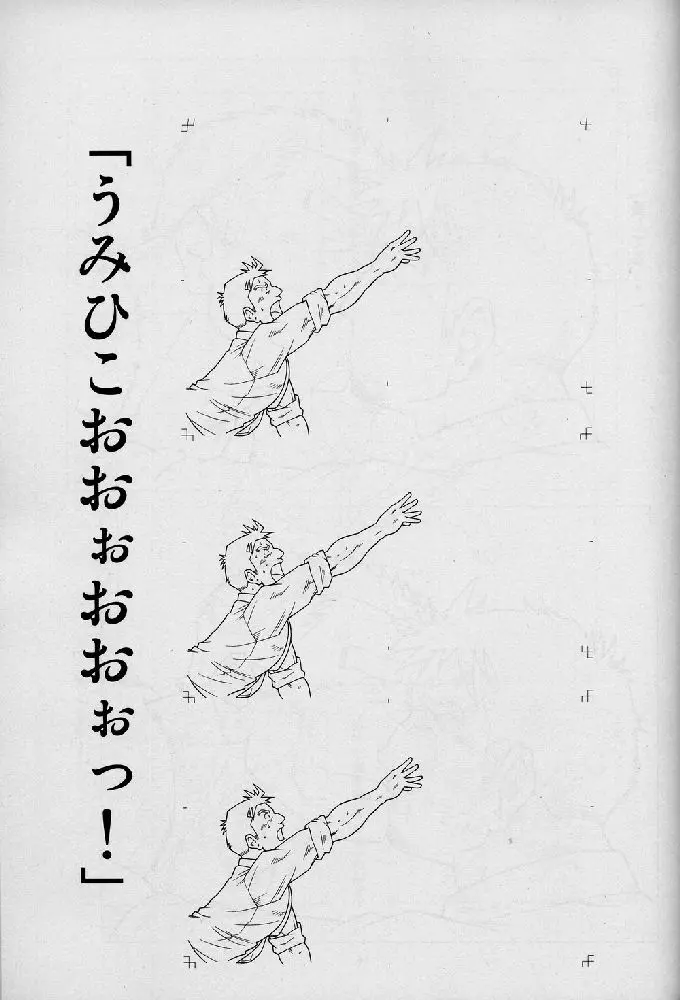 「うみひこおおぉおおぉっ！」